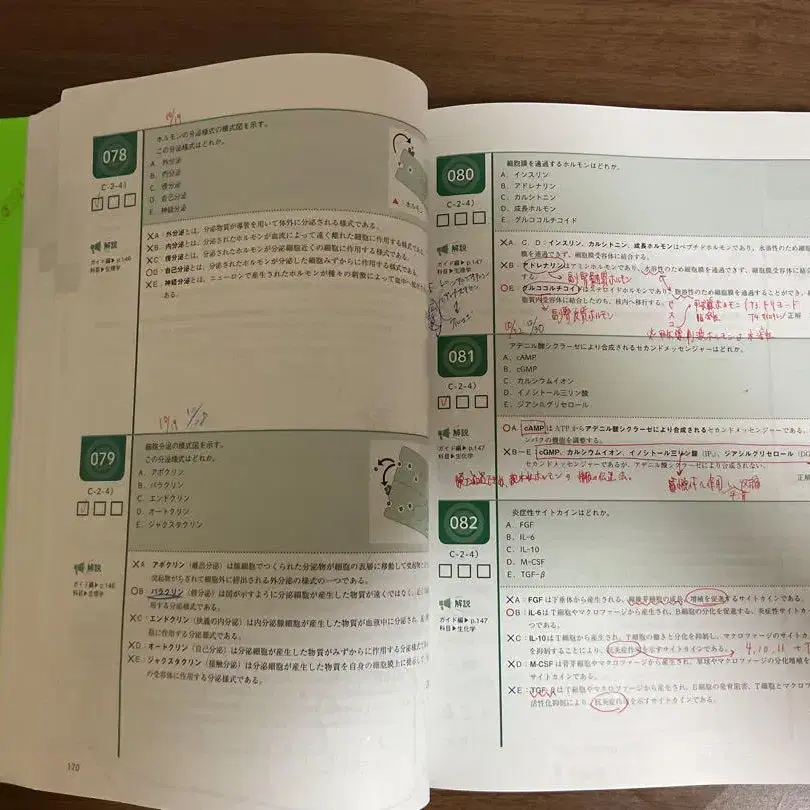 078
C-2-4)
ホルモンの分泌様式の模式図を示す。
この分泌様式はどれか。
A. 外分泌
B. 内分泌
C. 傍分泌
D. 自己分泌
E. 神経分泌
▲:ホルモン
解説
ガイド編▶p.146
科目▶生理学
×A 外分泌とは、分泌物質が導管を用いて体外に分泌される様式である。
×B 内分泌とは、分泌されたホルモンが血流によって遠く離れた細胞に作用する様式である
×C 傍分泌とは、分泌されたホルモンが分泌細胞近くの細胞に作用する様式である。
○D 自己分泌とは、分泌されたホルモンが分泌した細胞みずからに作用する様式である。
×E 神経分泌とは、ニューロンで産生されたホルモンが種々の刺激によって
ある。
079
C-2-4)
細胞分泌の模式図を示す。
この分泌様式はどれか。
A. アポクリン
B. パラクリン
C. エンドクリン
D. オートクリン
E. ジャクスタクリン
解説
ガイド編▶p.146
科目▶生理学
×A アポクリン(離出分泌)は腺細胞でつくられた分泌物が細胞の表層に移動して突起物
突起物がちぎれて細胞外に排出される外分泌の様式の一つである。
○B パラクリン(傍分泌)は図が示すように分泌細胞が産生した物質が遠くではなく、近
用する分泌様式である。
×C エンドクリン(狭義の内分泌)は内分泌腺細胞が産生した物質が血液中に分泌され、
に作用する分泌様式である。
×D オートクリン(自己分泌)は分泌細胞が産生した物質がみずからに作用する分泌様式
×E ジャクスタクリン(接触分泌)は分泌細胞が産生した物質を自身の細胞膜上に提示して
の受容体に作用する分泌様式である。
170
080
C-2-4)
細胞膜を通過するホルモンはどれか。
A. インスリン
B. アドレナリン
C. カルシトニン
D. 成長ホルモン
E. グルココルチコイド
解説
ガイド編▶p.147
科目▶生理学
×A、C、D:インスリン、カルシトニン、成長ホルモンはペプチドホルモンであり、水溶性のため細胞
膜を通過できず、細胞膜受容体に結合する。
×B アドレナリンはアミンホルモンであり、水溶性のため細胞膜を通過できず、細胞膜受容体に結合
する。
副腎髄質ホルモン
○E グルココルチコイドはステロイドホルモンであり、脂溶性のため細胞膜を通過することができ、
質内受容体に結合したのち、核内へ移行する。
正解
副腎皮質ホルモン
081
C-2-4)
アデニル酸シクラーゼにより合成されるセカンドメッセンジャーはどれか。
A. cAMP
B. cGMP
C. カルシウムイオン
D. イノシトール三リン酸
E. ジアシルグリセロール
解説
ガイド編▶p.147
科目▶生化学
○A cAMPはATPからアデニル酸シクラーゼにより合成されるセカンドメッセンジャーである。
ンパクの機能を調整する。
×B〜E cGMP、カルシウムイオン、イノシトール三リン酸(IP₃)、ジアシルグリセロール(DG
セカンドメッセンジャーであるが、アデニル酸シクラーゼにより合成されない。
正解
082
C-2-4)
炎症性サイトカインはどれか。
A. FGF
B. IL-6
C. IL-10
D. M-CSF
E. TGF-β
解説
ガイド編▶p.147
科目▶生化学
×A FGFは下垂体から産生される、線維芽細胞の成長、増殖を促進するサイトカインである。
○B IL-6はT細胞やマクロファージから産生され、B細胞の分化を促進する、炎症性サイトカイン
つである。
×C IL-10はT細胞から産生され、T細胞の働きと分化を抑制し、マクロファージのサイトカ
を抑制することにより、抗炎症作用を示すサイトカインである。
×D M-CSFは骨芽細胞やマクロファージから産生され、単球やマクロファージの分化増殖
サイトカインである。
×E TGF-βはT細胞やマクロファージから産生され、B細胞の発育阻害、T細胞とマクロフ
活性化抑制により、抗炎症作用を示すサイトカインである。